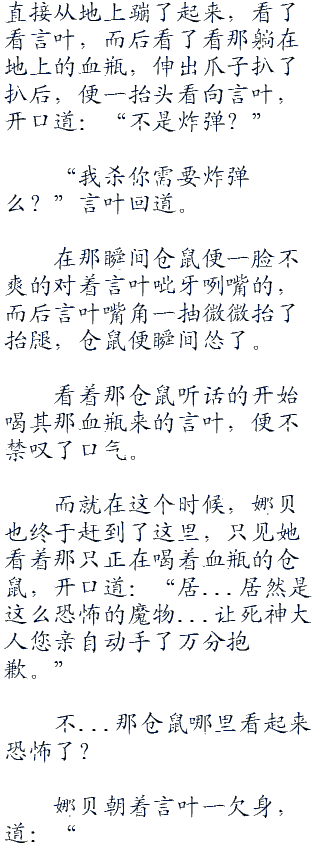 直接从地上蹦了起来，看了
看言叶，而后看了看那躺在
地上的血瓶，伸出爪子扒了
扒后，便一抬头看向言叶，
开口道：“不是炸弹？”
“我杀你需要炸弹
么？”言叶回道。
在那瞬间仓鼠便一脸不
爽的对着言叶呲牙咧嘴的，
而后言叶嘴角一抽微微抬了
抬腿，仓鼠便瞬间怂了。
看着那仓鼠听话的开始
喝其那血瓶来的言叶，便不
禁叹了口气。
而就在这个时候，娜贝
也终于赶到了这里，只见她
看着那只正在喝着血瓶的仓
鼠，开口道：“居...居然是
这么恐怖的魔物...让死神大
人您亲自动手了万分抱
歉。”
不...那仓鼠哪里看起来
恐怖了？
娜贝朝着言叶一欠身，
道：“